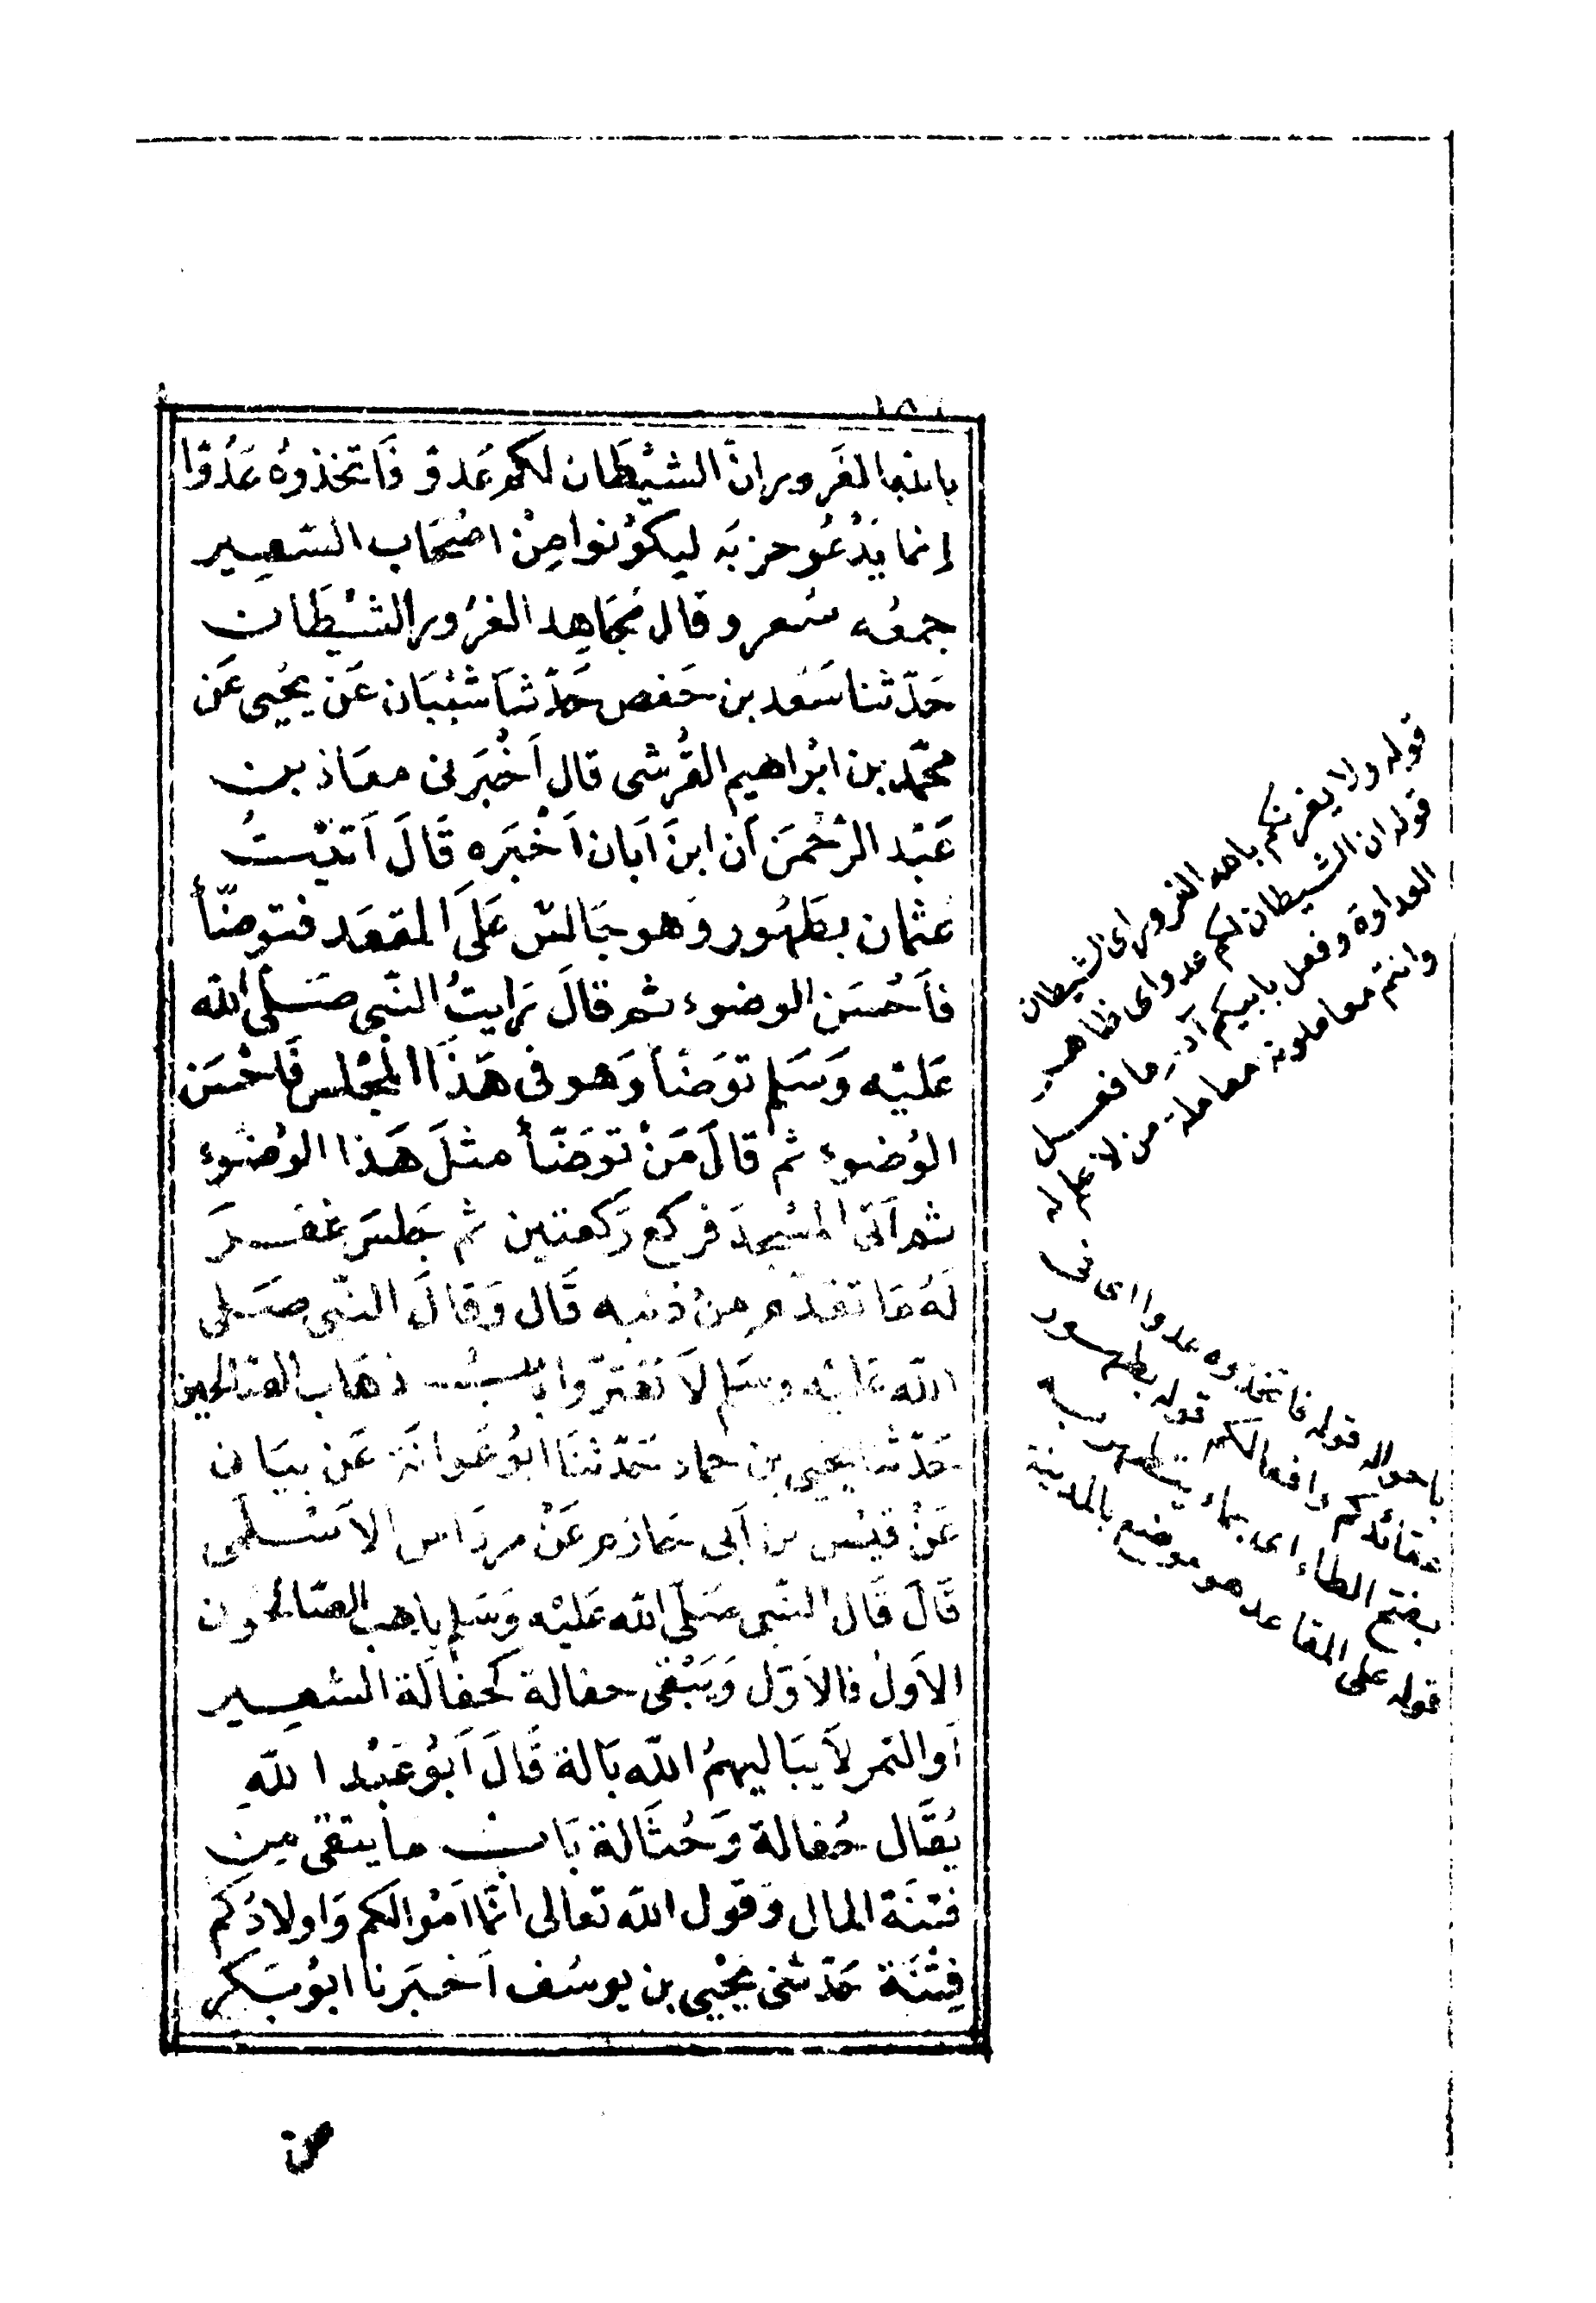 بالله الغَرور انَّ الشيْطَان لكم عَدوّ فَاتخذوهُ عَدُوّا
إنما يَدْعُو حزبَه ليكوْنوا مِنْ اصْحَاب السّعِير
جمعُه سُعر وقال مُجَاهِد الغرُور الشيْطَان
حَدّثنا سَعْد بن حَفص حَدّثنا شَيْبَان عَن يحْيى عَن
محمّد بن ابْراهيم القُرشى قال أخْبَرنى معَاذ بن
عَبْد الرّحْمَن أن ابنَ أبَان أخْبَره قَالَ أتيْتُ
عُثمان بطَهُور وَهو جَالسْ عَلَى المقعَد فتوضّأ
فأحْسَن الوضوء ثم قالَ رَايتُ النّبى صَلى الله
عَليْه وَسَلم توَضّأ وَهو فى هَذَا المَجْلس فَاحْسَن
الوُضوء ثم قالَ مَنْ توَضّأ مثلَ هَذا الوُضوُء
ثم أتى المسْجدَ فركع رَكعتين ثم جَلسَ غفرَ
لَهُ مَا تقدّم مِنْ ذنبه قَال وَقالَ النّبى صَلى
الله عَليْه وسَلم لاَ تغترّوا بابُ ذهَاب الصّالحين
حَدّثنا يحْيى بن حماد حَدّثنَا ابُو عَوانَة عَن بيَان
عَنْ قيْس بن أبى حَازم عَنْ مردَاس الاَسْلَمى
قَالَ قَال النّبى صَلّى الله عَليْه وَسَلم ياهب الصّالحُون
الاَولُ فالاَوّل وَيَبْقى حفالة كحُفَالَة الشعِير
أو التمر لاَ يبَاليهمُ الله بَالة قَالَ أبُو عَبْد اللهِ
يُقَال حُفالة وَحُثَالة بَابُ ما يتقى مِن
فتنَة المال وَقول الله تعالى انمّا امْوالكم وَاولادُكم
فِتْنَة حَدّثنى يحْيى بن يوسُف أخبَرنا ابُو بَكر
قوله ولا يغرنكم بالله الغرور اى الشيطان
قوله ان الشيطان لكم عدو اى ظاهر
العداوة وفعل بابيكم آدم ما فعل
وانتم تعاملونه معاملة من لا علم له
باحواله قوله فاتخذوه عدوا اى فى
عقائدكم وافعالكم قوله بطهور
بفتح الطاء اى بماء يتطهر به
قوله على المقاعد هو موضع بالمدينة